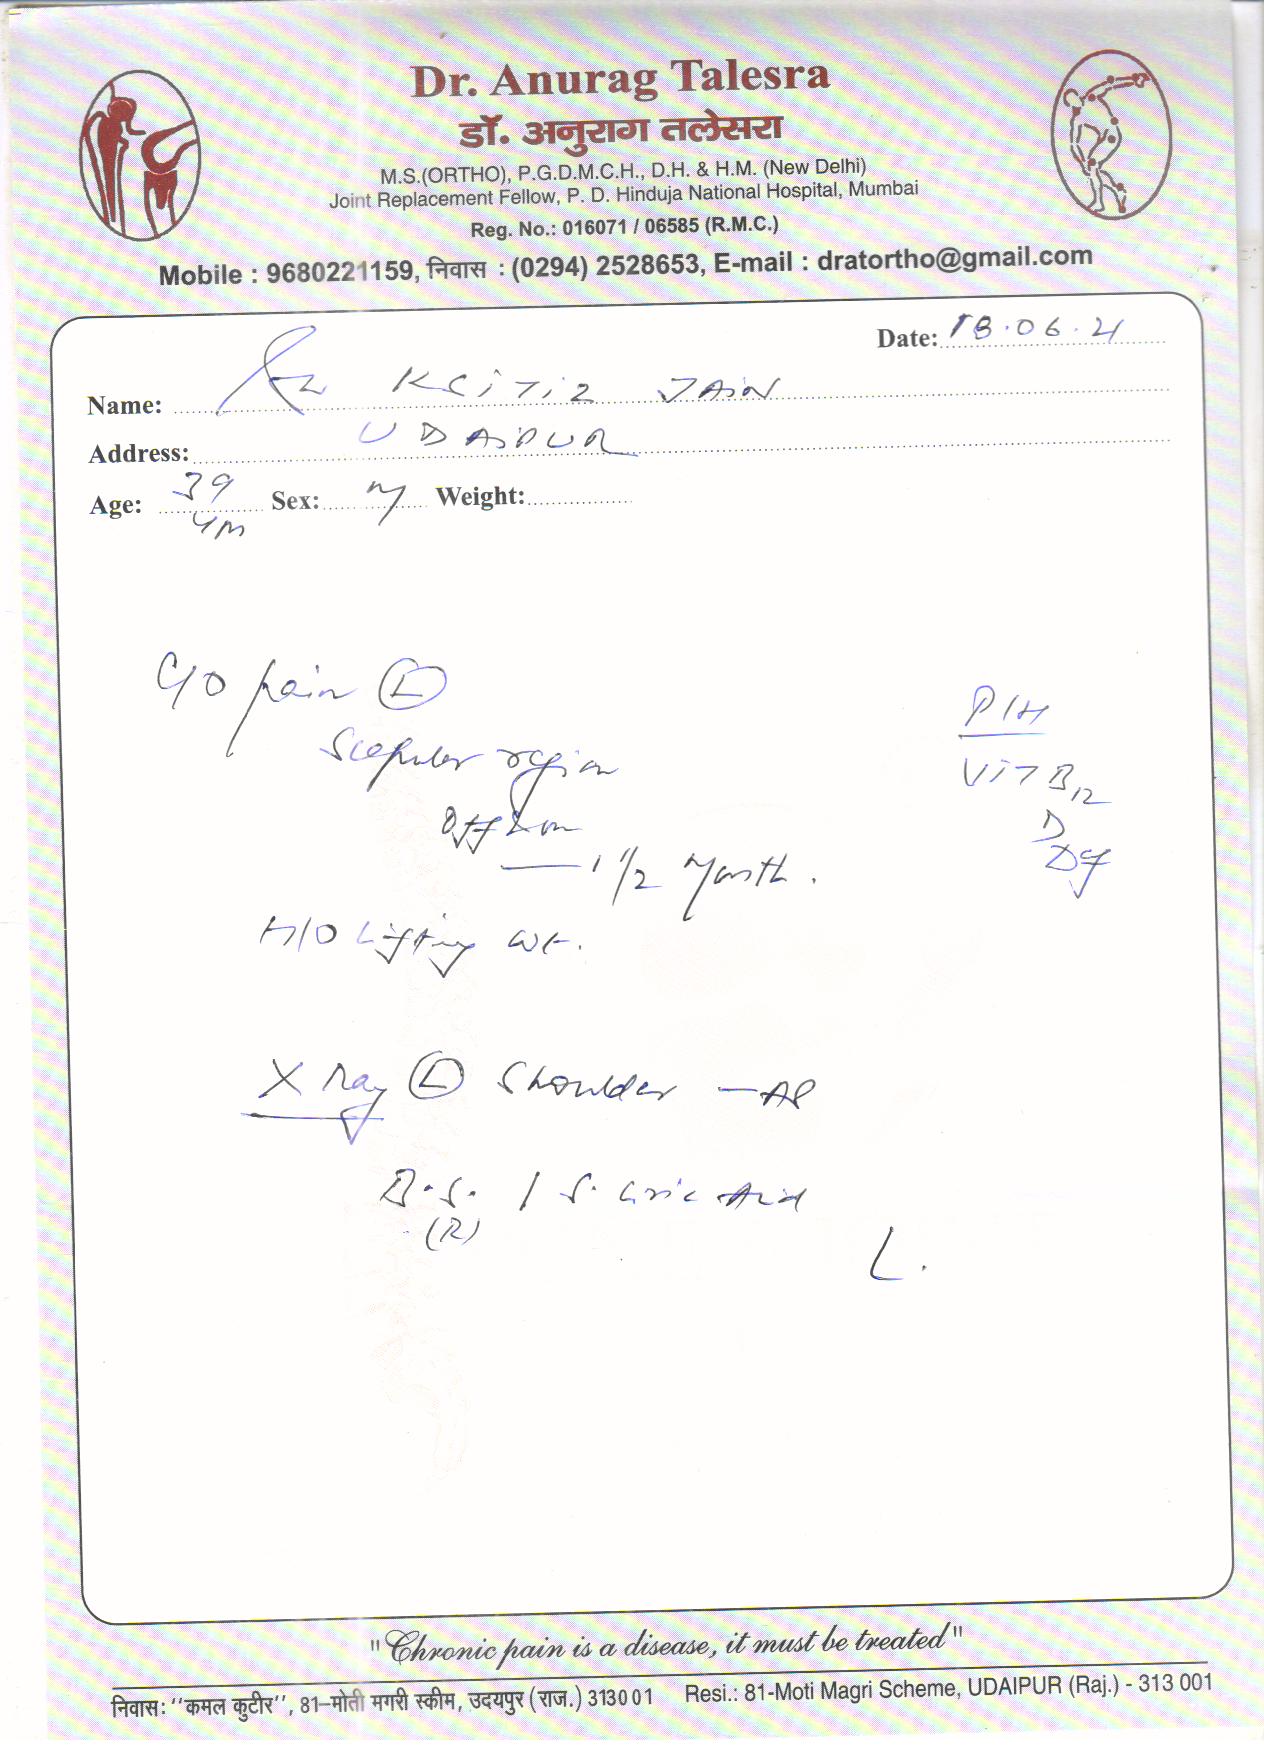 Dr. Anurag Talesra
डॉ. अनुराग तलेसरा
M.S.(ORTHO), P.G.D.M.C.H., D.H. & H.M. (New Delhi)
Joint Replacement Fellow, P. D. Hinduja National Hospital, Mumbai
Reg. No.: 016071 / 06585 (R.M.C.)
Mobile : 9680221159, निवास : (0294) 2528653, E-mail : dratortho@gmail.com
Date: 18.06.21
Name: KSiTiz JAiN
Address: UDAiPUR
Age: 39 Sex: M Weight:
C/O pain (L)
Scapular region
Off & on
— 1 1/2 Month.
H/O Lifting wt.
P/H
ViT B12
D
X Ray (L) Shoulder - AP
B.S. / S. Uric Acid
(R)
"Chronic pain is a disease, it must be treated"
निवास: ''कमल कुटीर'', 81–मोती मगरी स्कीम, उदयपुर (राज.) 313001 Resi.: 81-Moti Magri Scheme, UDAIPUR (Raj.) - 313 001